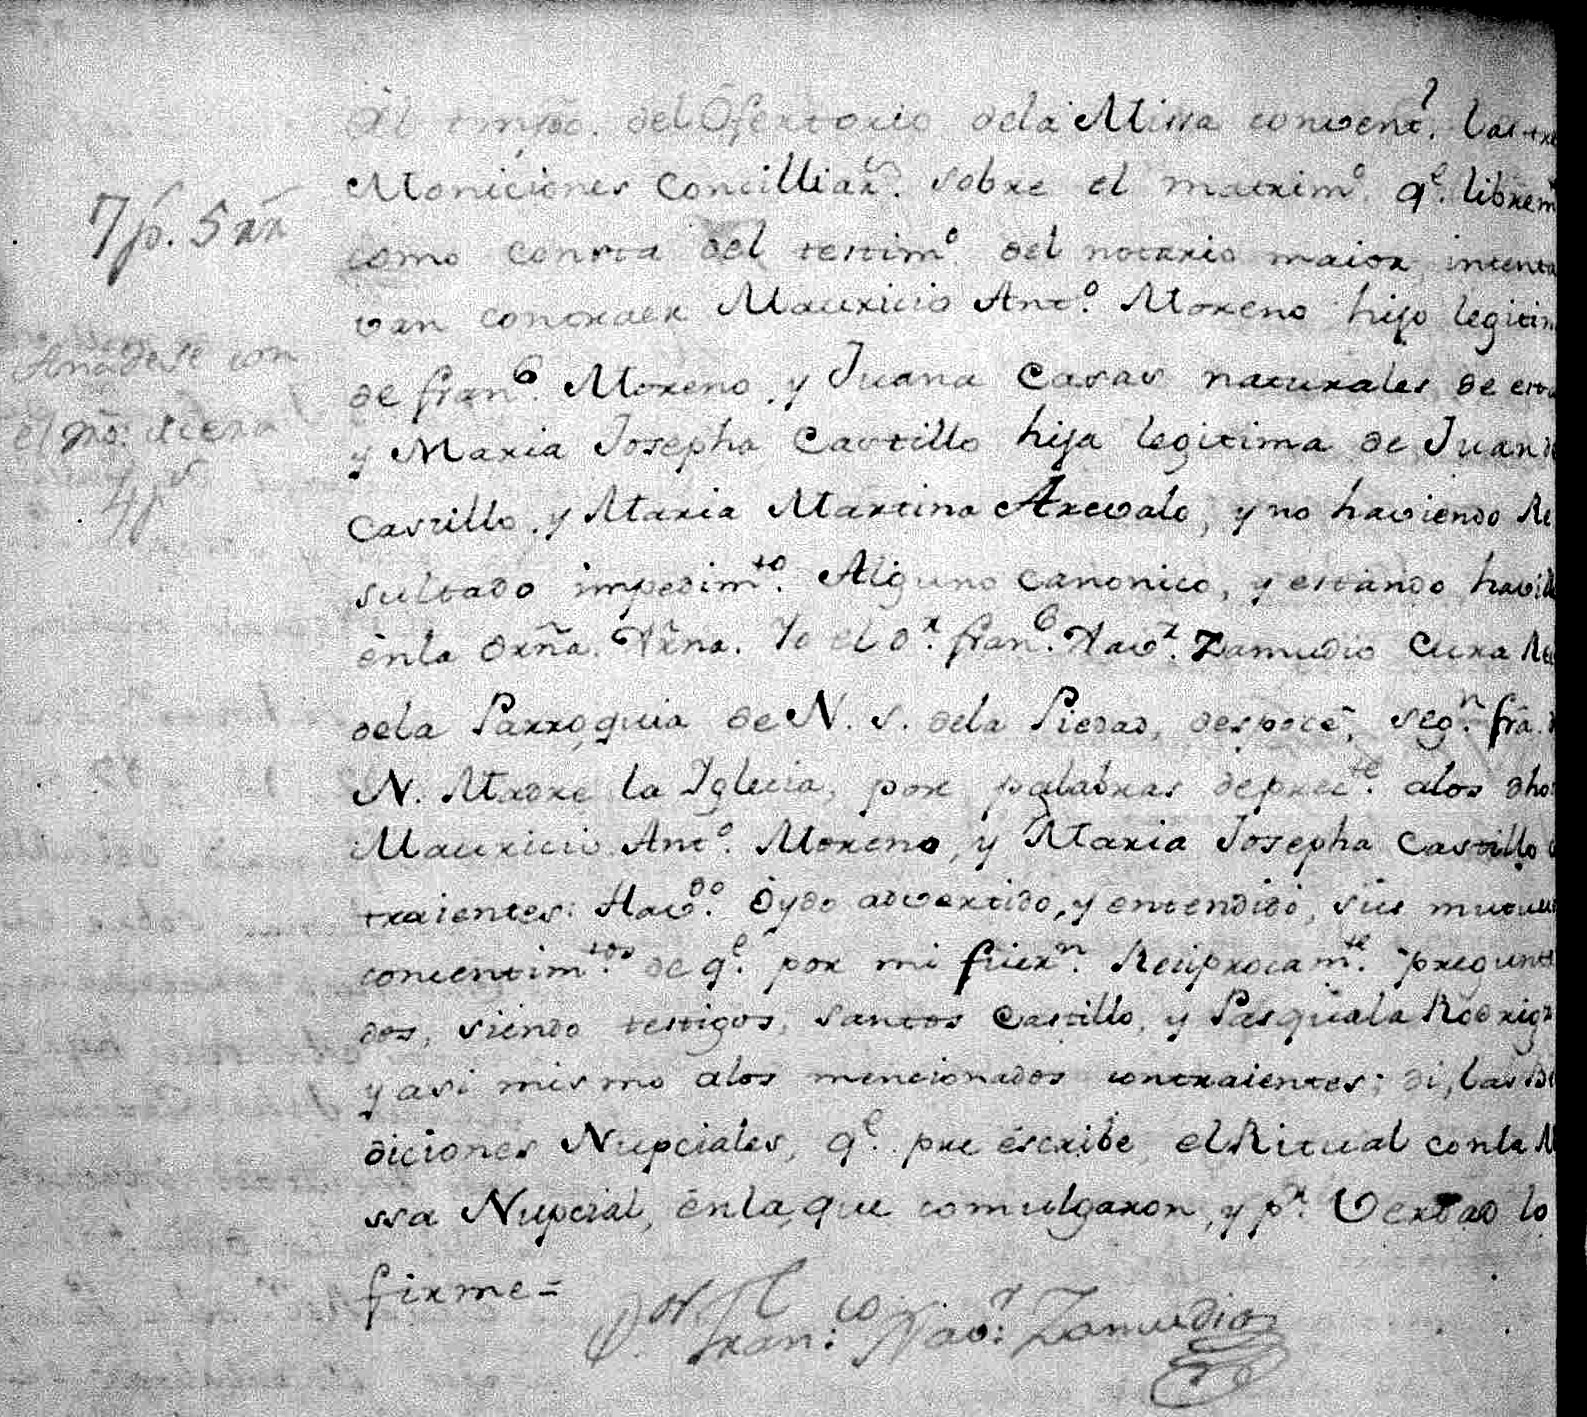 Al tmpo. del Ofertorio dela Missa convent.l las tre
7p. 5 rr
Moniciones Concilliar.s sobre el matrim.o q.e librem
como consta del testim.o del notario maior, intenta
van contraer Mauricio Ant.o Moreno hijo legitim
Añadese con
de fran.co Moreno, y Juana Casas naturales de esta
el
y Maria Josepha Castillo hija legitima de Juan de
4p.s
Castillo, y Maria Martina Arevalo, y no haviendo Re
sultado impedim.to Alguno canonico, y estando havile
ènla Dxña. Xrña. Yo el D.r fran.co Xav.r Zamudio Cura Re
dela Parroquia de N. S. dela Piedad, despocè, seg.n fra.
N. Madre la Iglecia, por palabras deprec.te alos dho
Mauricio Ant.o Moreno, y Maria Josepha Castillo
traientes: Hav.do Oydo advertido, y entendido, sus mutuu
concentim.tos de q.e por mi fuer.n Reciprocam.te pregunt
dos, siendo testigos, santos Castillo, y Pasquala Rodrig
y asi mismo alos mencionados contraientes; di, las Be
diciones Nupciales, q.e pre escribe, el Ritual con la M
ssa Nupcial, ènla que comulgaron, y p.r Verdad lo
firme=
D.or Fran.co Xav.r Zamudio